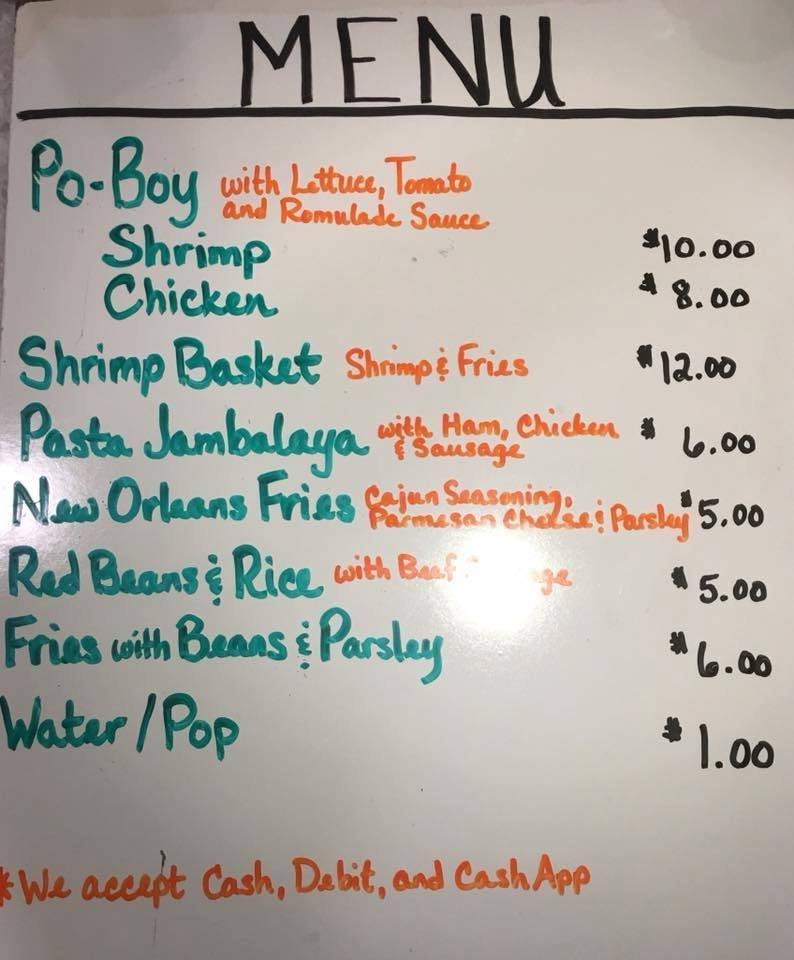 MENU
Po-Boy with Lettuce, Tomato
and Romulade Sauce
Shrimp $10.00
Chicken $8.00
Shrimp Basket Shrimp & Fries $12.00
Pasta Jambalaya with Ham, Chicken
& Sausage $6.00
New Orleans Fries Cajun Seasoning,
Parmesan Cheese & Parsley $5.00
Red Beans & Rice with Beef $5.00
Fries with Beans & Parsley $6.00
Water/Pop $1.00
*We accept Cash, Debit, and CashApp